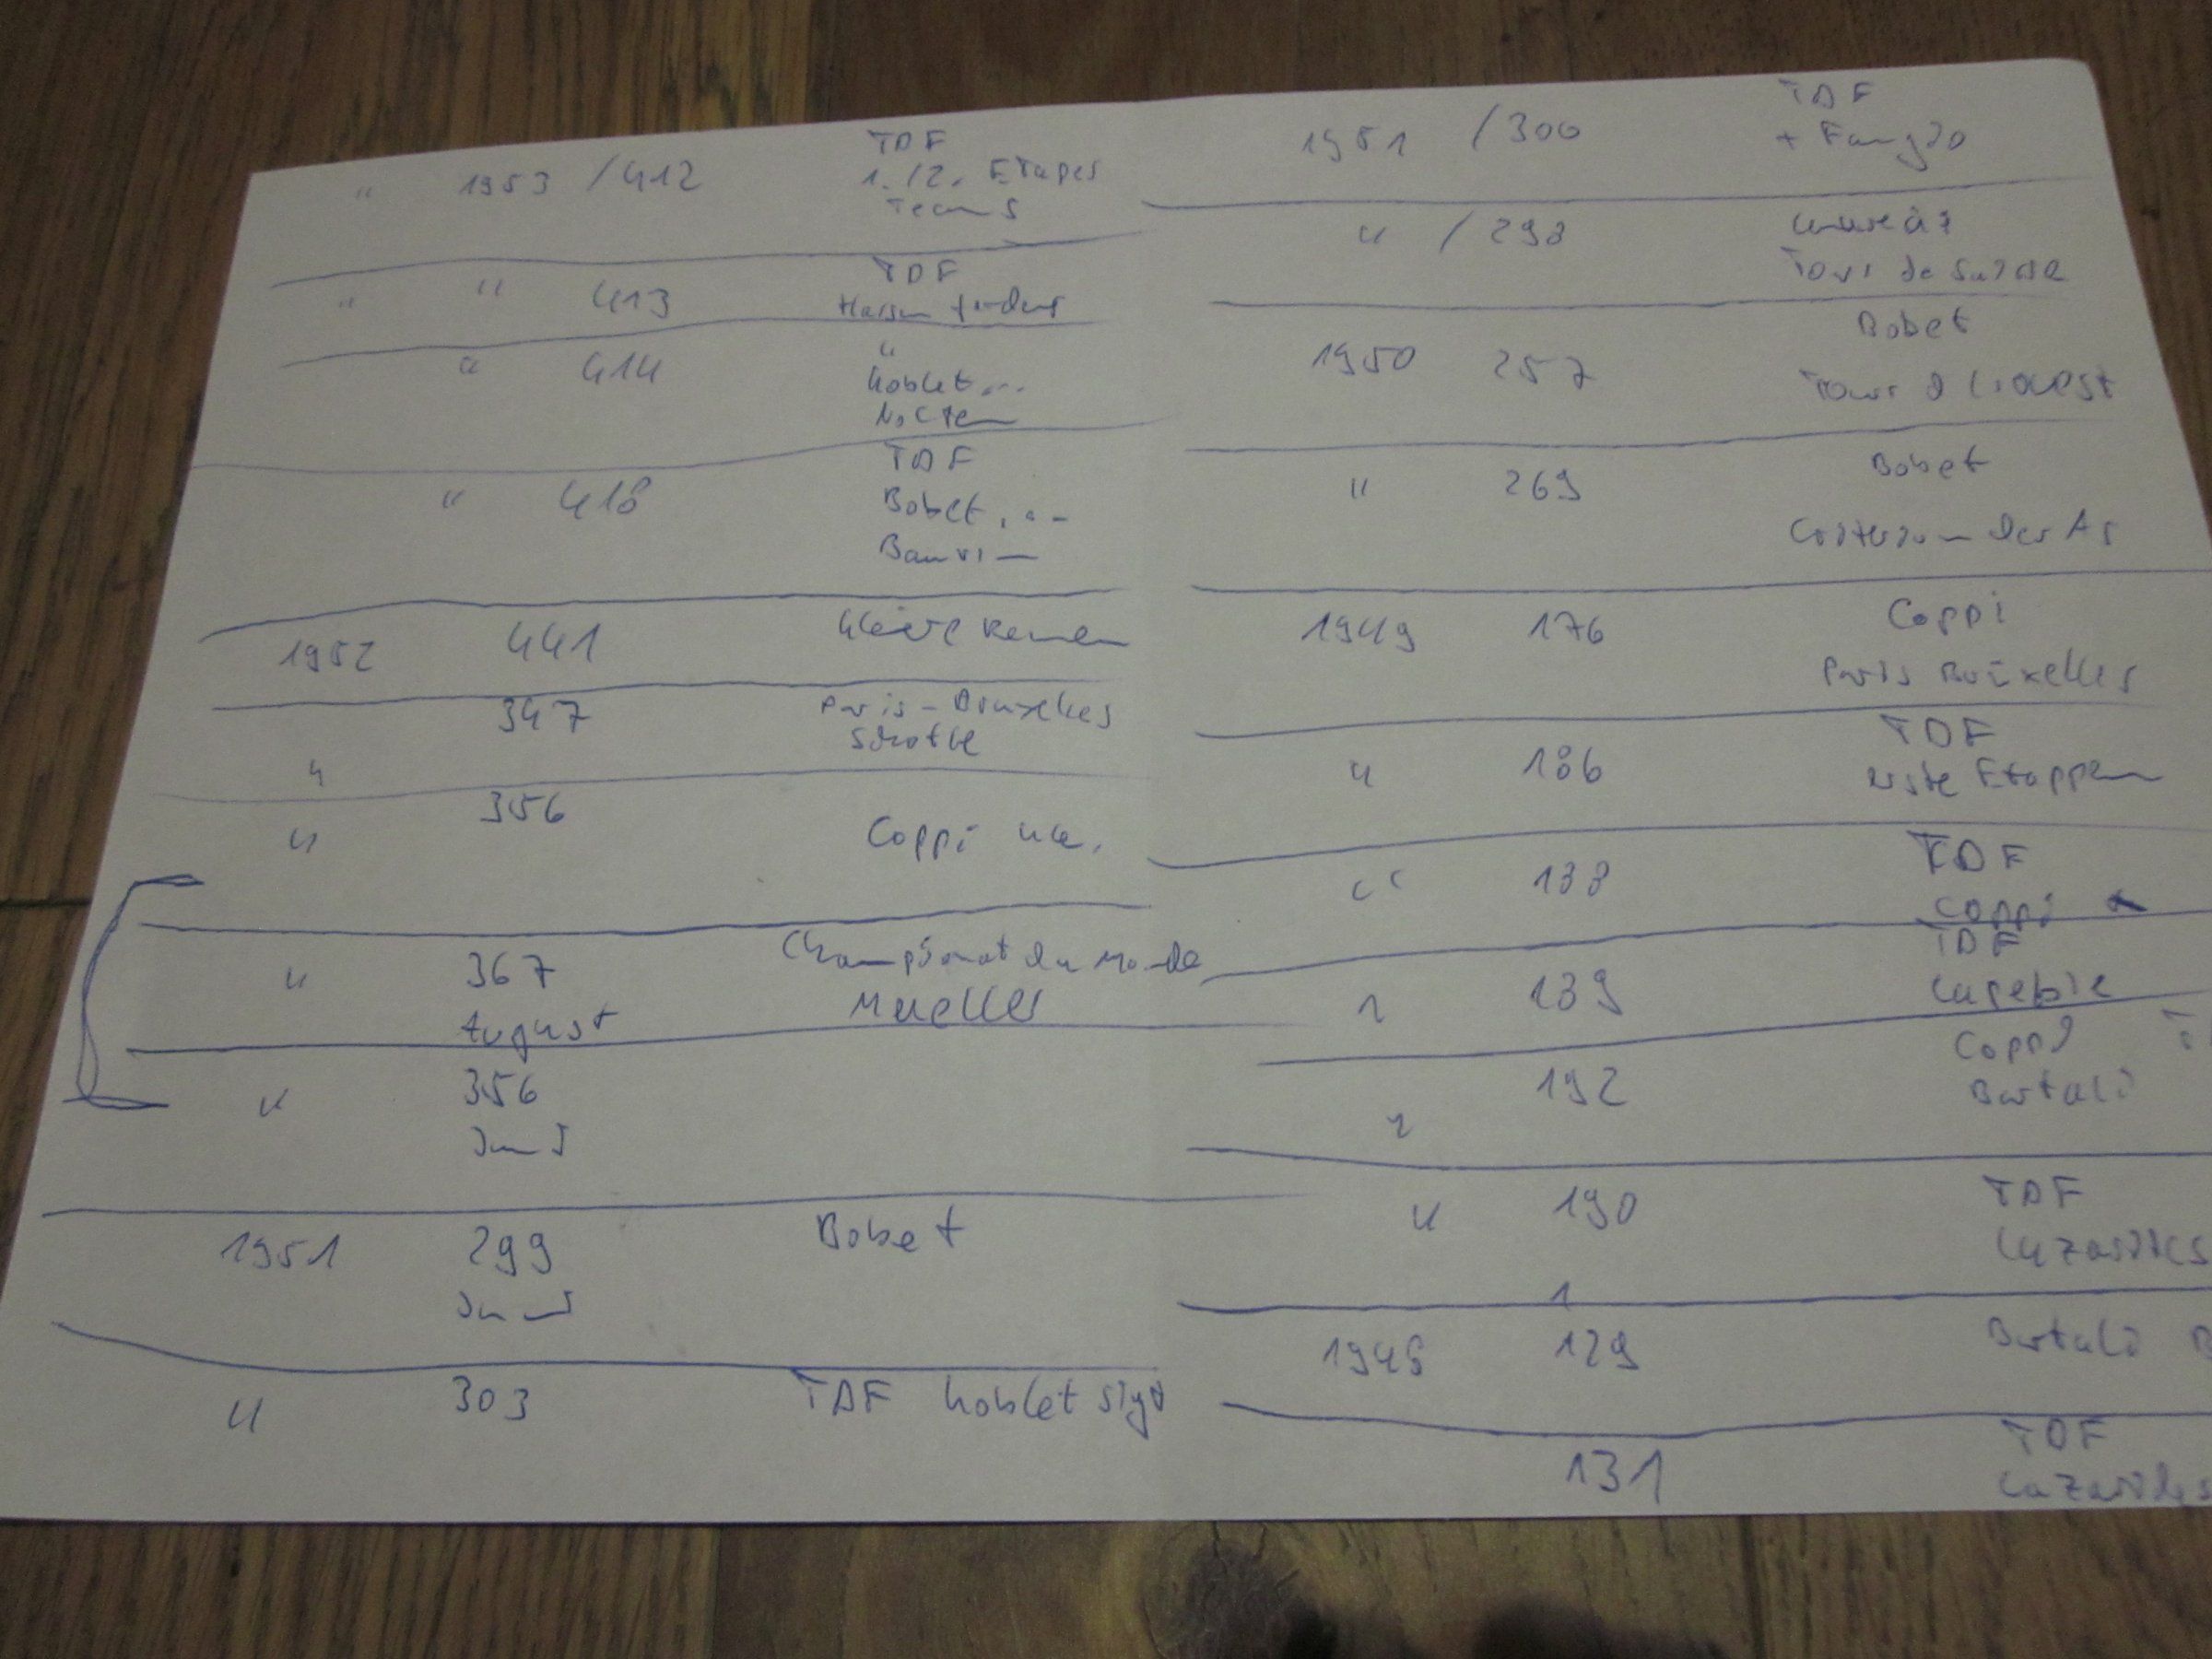 " 1953 / 412 TDF
1./2. Etapes
Teams
" " 413 TDF
" 414 "
Koblet ...
Nocten
" 418 TDF
Bobet, . -
1952 441 Rennen
" 347 Paris - Bruxelles
Schotte
" 356 Coppi
" 367 Championat du Monde
August Mueller
" 356
Juni
1951 299 Bobet
Juni
" 303 TDF Koblet sigt
1951 / 300 TDF
+ Fangio
" / 298
Tour de Suisse
1950 257 Bobet
Tour d l'ouest
" 269 Bobet
Criterium der As
1949 176 Coppi
Paris Bruxelles
" 186 TDF
erste Etappen
" 188 TDF
Coppi
" 189 TDF
Lapebie
" 192 Coppi
Bartali
" 190 TDF
Lazarides
1948 129 Bartali B
131 TDF
Lazarides